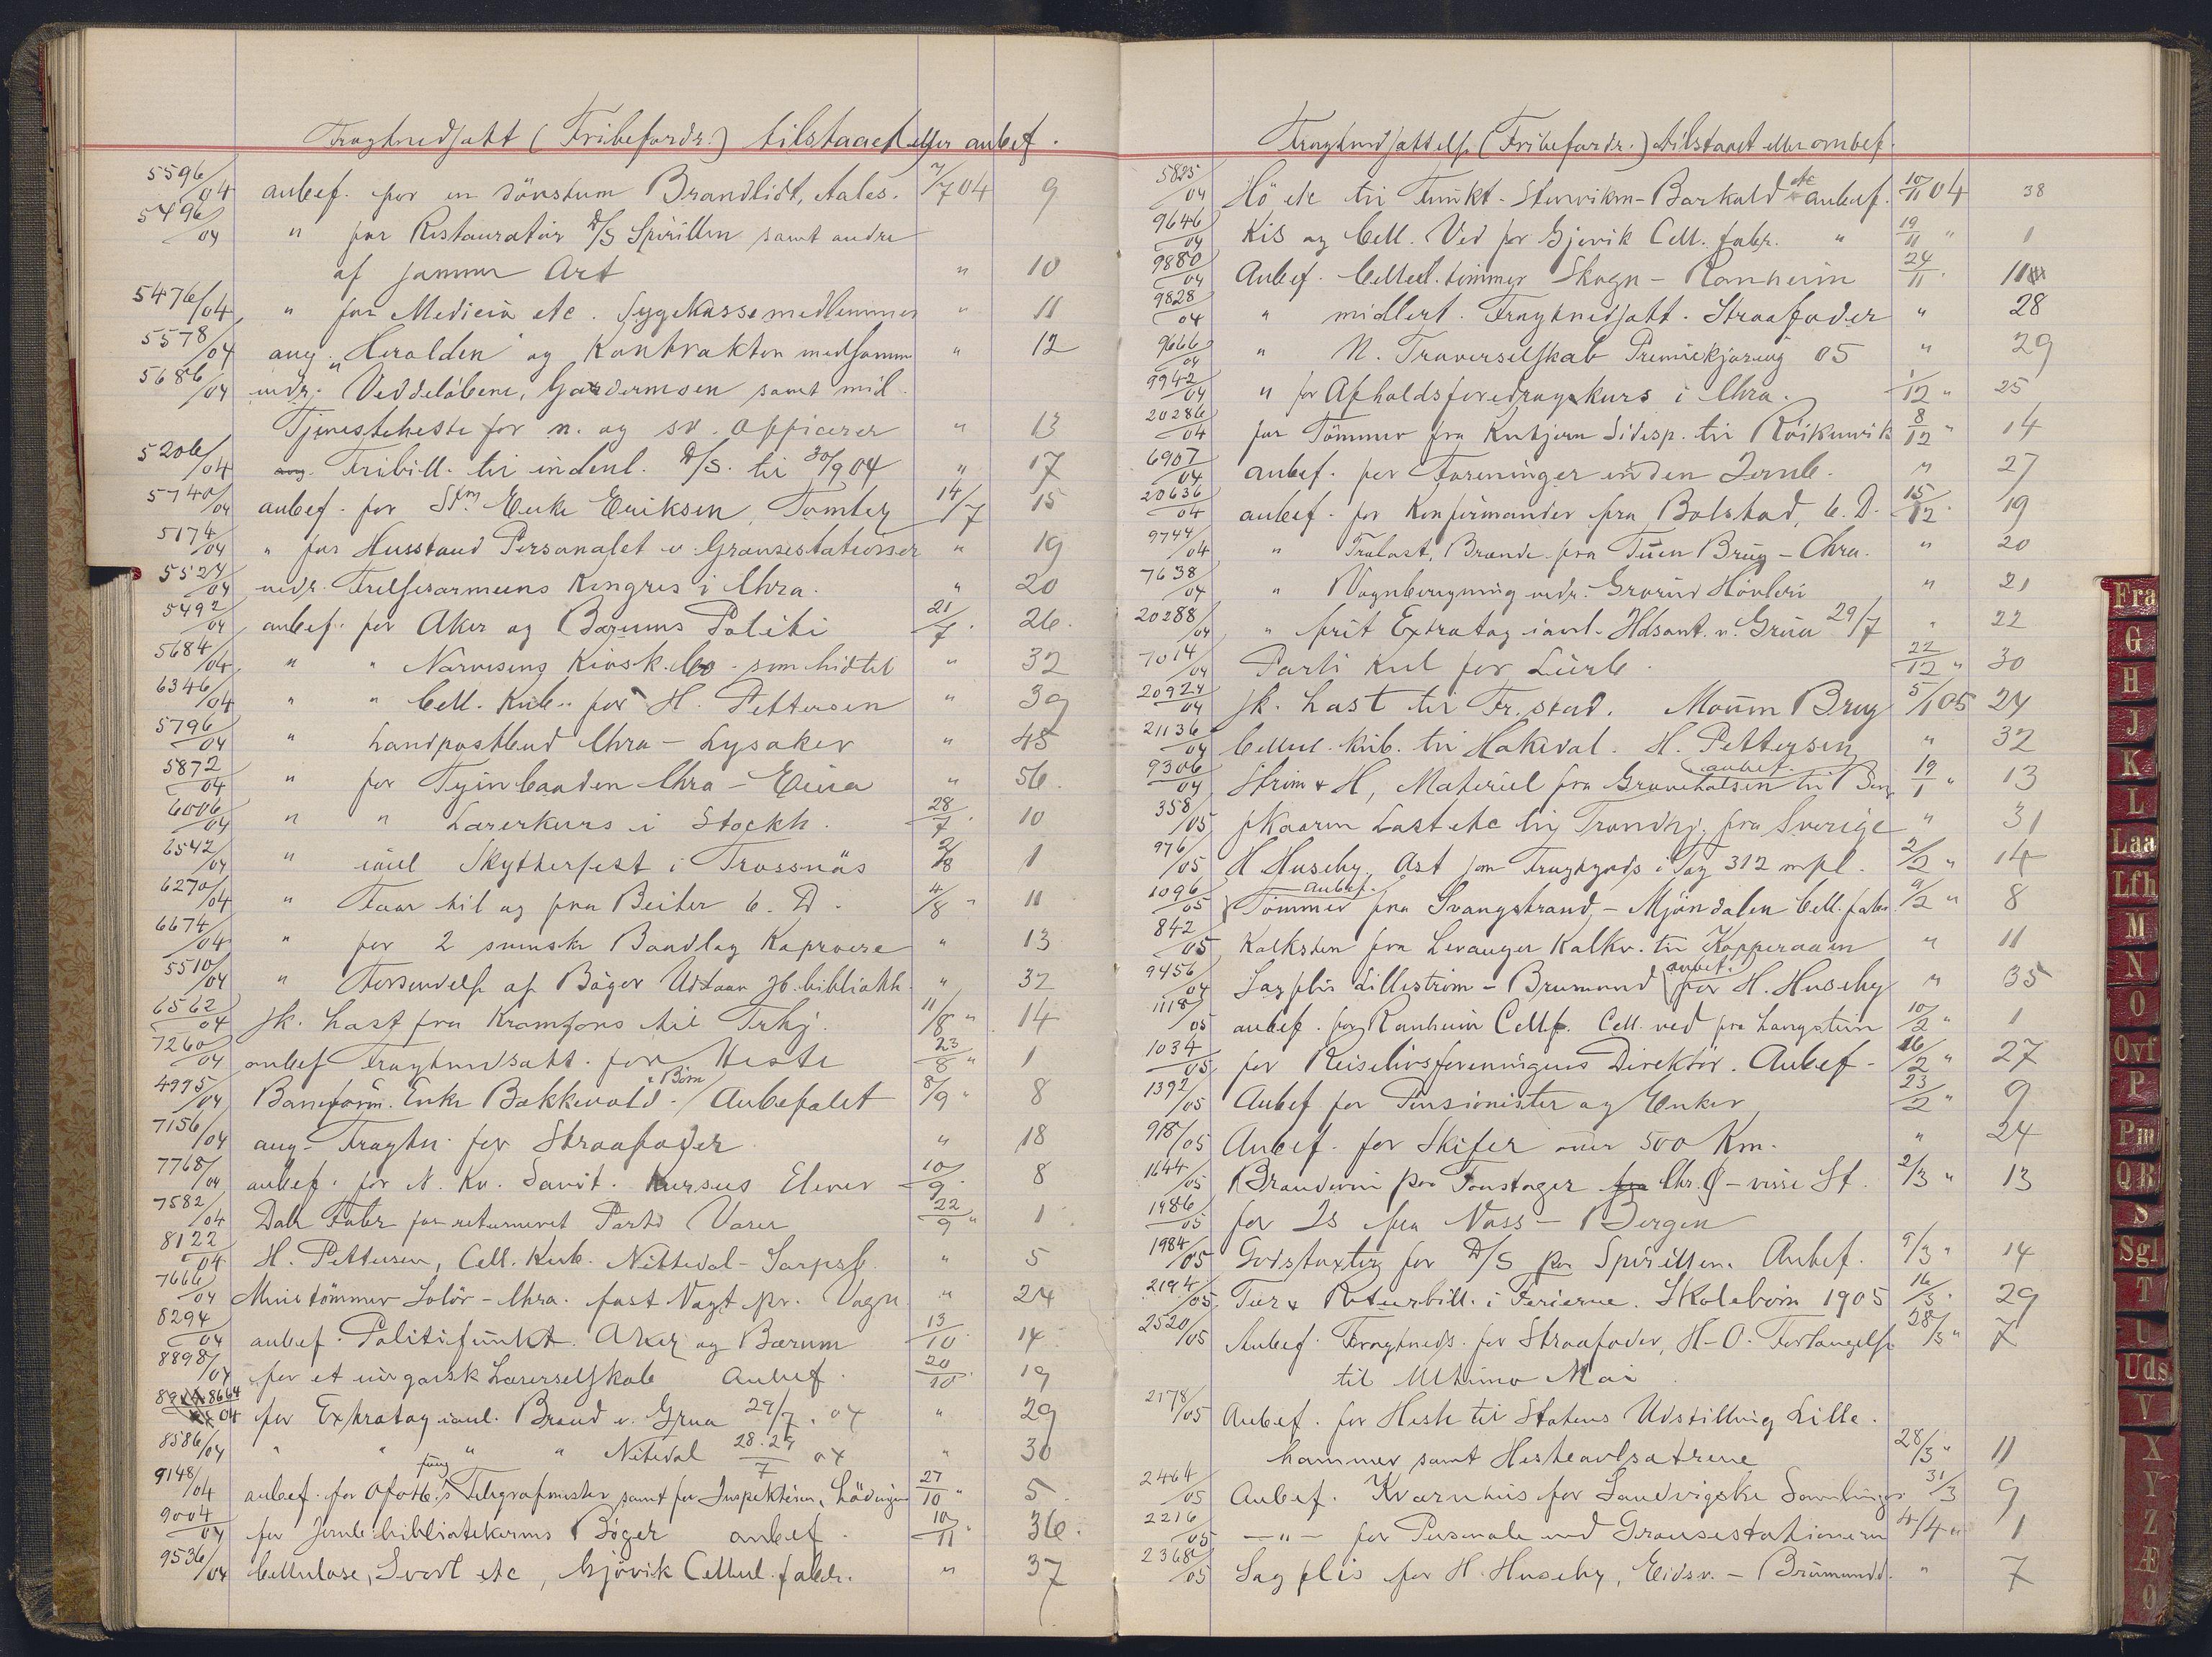 Fragtnedsatt (Fribefordr.) tilstaaet eller anbef.
5596/04 anbef. for en Brandlidt, Aales. 7/7 04 9
5496/04 " for Restauratör D/S Spirillen samt andre
af samme Art " 10
5476/04 " for Medicin etc. Sygekassemedlemmer " 11
5578/04 ang. "Heralden" og Kontrakten medsamme " 12
5686/04 vedr. Veddelöbene, Gardermoen samt mil.
Tjenesteheste for n. og sv. Officerer " 13
5206/04 Fribill. til indenl. D/S. til 30/9 04 " 17
5740/04 anbef. for Stm Enke Eriksen, Tomter 14/7 15
5174/04 " for Husstand Personalet v Grænsestationer " 19
5524/04 vedr. Frelsesarmeens Kongres i Chra. " 20
5492/04 anbef. for Aker og Bærums Politi 21/7. 26.
5684/04 " " Narvesens Kiosk.Co. som hidtil " 32
6346/04 " " Cell. Kub. for H. Pettersen " 39
5796/04 " Landpostbud Chra - Lysaker " 45
5872/04 " for Tyinbaaden Chra - Eina " 56.
6006/04 " " Lærerkurs i Stockh. 28/7. 10
6542/04 " Skytterfest i Trossnäs 2/8 1
6270/04 " Faar til og fra Beiter 6. D. 4/8 " 11
6674/04 " for 2 svenske Baadlag Kaproere " 13
5510/04 " Forsendelse af Böger Udlaan Jb.bibliothk. " 32
6562/04 sk. Last fra Kramfors til Trhj. 11/8 " 14
7260/04 anbef Fragtnedsatt. for Heste 23/8 " 1
4995/04 Baneform. Enke Bakkevold. i Börn / Anbefalet 8/9 " 8
7156/04 ang. Fragtn. for Straafoder " 18
7768/04 anbef. for N. Kv. Sanit. Kursus Elever 10/9. 8
7582/04 Dale Fabr for returneret Parti Varer 22/9 " 1
8122/04 H. Pettersen, Cell. Kub. Nittedal - Sarpsb. " 5
7666/04 Minetömmer Solör - Chra. fast Vægt pr. Vogn " 24
8294/04 anbef. Politifunkt. Aker og Bærum 13/10 14
8898/04 for et ungarsk Læserselskab Anbef. 20/10. 19
8664/04 for Extratog ianl. Brand v. Grua 29/7. 04 " 29
8586/04 " " " " Nitedal 28.29/7 04 " 30
9148/04 anbef. for Ofotb.s fung Telegrafmester samt for Inspektören, Lödingen 27/10 " 5.
9004/04 for Jernb.bibliotekernes Böger anbef. 10/11 " 36.
9536/04 Cellulose, Svovl etc, Gjövik Cellul. fabr. " 37
Fragtnedsættelse (Fribefordr.) tilstaaet eller anbef.
5825/04 Hö etc til Funkt. Steinvikm - Barkald etc anbef. 10/11 04 38
9646/04 Kis og Cell. Ved for Gjövik Cell. fabr. " 19/11 " 1
9880/04 Anbef. Cellul. tömmer Skogn - Ranheim 24/11. 11
9828/04 " midlert. Fragtnedsatt. Straafoder " 28
9666/04 " N. Traverselskab Premiekjøring 05 " 29
9942/04 " for Afholdsforedragskurs i Chra. 1/12 " 25
20286/04 for Tömmer fra Sidesp. til Röikenvik 8/12 " 14
6907/04 anbef. for Foreninger inden Jernb. " 27
20636/04 anbef. for Konfirmander fra Bolstad, 6. D. 15/12. 19
9744/04 " Trælast, Brænde fra Tuen Brug - Chra. " 20
7638/04 " Vognberegning vedr. Grorud Hövleri " 21
20288/04 " frit Extratog ianl. Ildsant. v. Grua 29/7 " 22
7014/04 Parti Kul for Lurb. 22/12 " 30
20924/04 sk. Last til Fr.stad. Moum Brug 5/1 05 24
21136/04 Cellul. Kub. til Hakedal. H. Pettersen " 32
9306/04 Ström & H, Materiel fra Gravehalsen anbef. 19/1 " 13
358/05 skaaren Last etc til Trondhj. fra Sverige " 31
976/05 H Huseby, Ost som Fragtgods i Tog 312 2/2 " 14
1096/05 Tömmer anbef. fra Svangstrand - Mjöndalen Cell. fabr. 9/2 " 8
842/05 Kalksten fra Levanger Kalkv. til Kopperaaen " 11
9456/04 Sagflis Lilleström - Brumund anbef. for H. Huseby " 35
1118/05 anbef. for Ranheim Cellf. Cell. ved fra Langsten 10/2 " 1
1034/05 for Reiselivsforeningens Direktör. Anbef. 16/2 " 27
1392/05 Anbef for Pensionister og Enker 23/2 " 9
918/05 Anbef. for Skifer over 500 Km. " 24
1644/05 Brændevin paa Foustager Chr. Ø - visse St. 2/3 " 13
1986/05 for Is fra Voss - Bergen
1984/05 Godstaxter for D/S Spirillen. Anbef. 9/3 " 14
2194/05 Tur & Returbill. i Ferierne. Skolebörn 1905 16/3. 29
2520/05 Anbef. Fragtneds. for Straafoder, H-O. Forlængelse 28/3 " 7
til Ultimo Mai
2178/05 Anbef. for Heste til Statens Udstilling Lille-
hammer samt Hesteavlsætrene 28/3 " 11
2464/05 Anbef. Kværnhus for Sandvigske Samlinger 31/3 9
2216/05 - " - for Personale ved Grænsestationerne 4/4 " 1
2368/05 Sagflis for H. Huseby, Eidsv. - Brumundd. " 7
Fra
G
H
J
K
L
Laa
Lfh
M
N
O
Ovf
P
Pm
Q R
S
Sgl
T
U
Uds
V
X
Y
Z
Æ
Ø